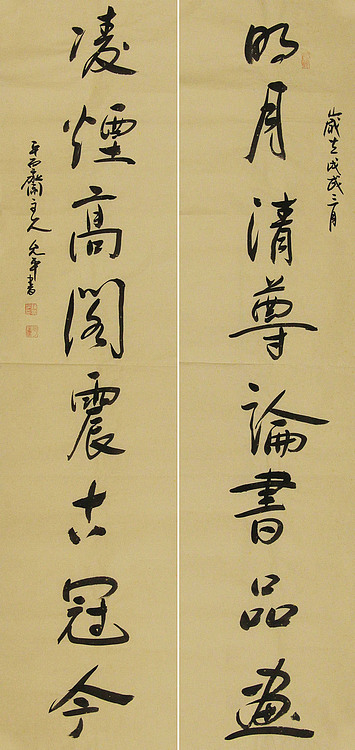 明月清尊論書品畫
歲在戊戌三月
凌煙高閣震古冠今
齋主人允平書